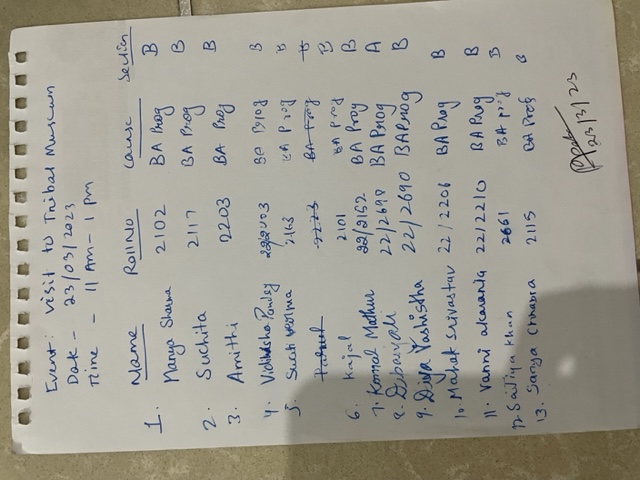 Event: Visit to Tribal Museum
Date - 23/03/2023
Time - 11 Am - 1 pm
Name Roll No Course Section
1. Manya Sharma 2102 BA Prog B
2. Suchita 2117 BA Prog B
3. Amithi 2203 BA Prog B
4. Vidhusha Pandey BA Prog B
5. Swati 2163 BA Prog B
BA Prog B
6. Kajal 2101 BA Prog B
7. Komal Mathur 22/2152 BA Prog B
8. Debanjali 22/2698 BA Prog A
9. Divya Vashistha 22/2690 BA Prog B
10. Mahak Srivastav 22/2206 BA Prog B
11. Vanni 22/2210 BA Prog B
12. Sadiya Khan 2661 BA Prog B
13. Sanya Chhabra 2115 BA Prog B
23/3/23